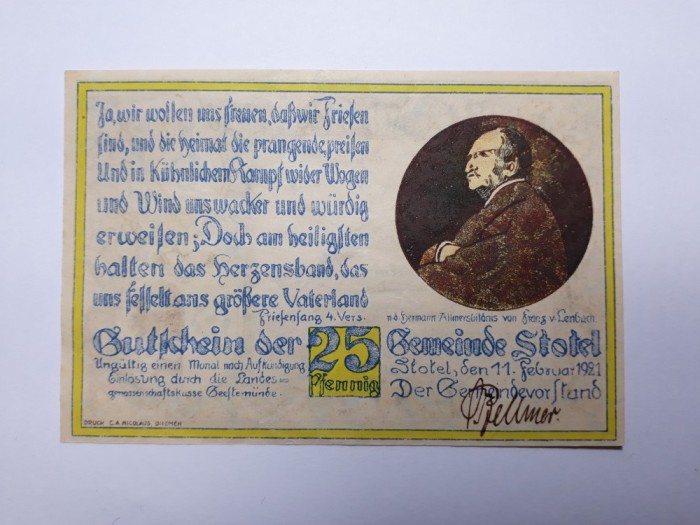 Ja, wir wollen uns freuen, daß wir Friesen
sind, und die Heimat die prangende, preisen
Und in Kühnlichem Kampf wider Wogen
und Wind uns wacker und würdig
erweisen; Doch am heiligsten
halten das Herzensband, das
uns fesselt ans größere Vaterland
Friesensang 4. Vers.
n.d. Hermann Allmersbildnis von Franz v. Lenbach
Gutschein der 25 Pfennig Gemeinde Stotel
Ungültig einen Monat nach Aufkündigung
Einlösung durch die Landes=
genossenschaftskasse Geestemünde.
Stotel, den 11. Februar 1921
Der Gemeindevorstand
DRUCK C.A. NICOLAUS BREMEN